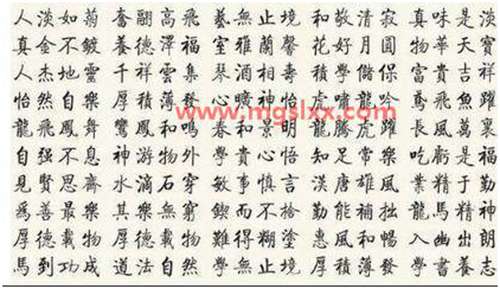 人淡如菊 奮翩高飛 藝無止境 和敬清寂 真味是淡
真金不鍍 養德澤福 室雅蘭馨 花好月圓 物華天寶
人杰地靈 千祥雲集 琴酒相壽 積學儲 富貴吉祥
怡然自樂 厚積薄 心曠神怡 虎嘯龍吟 鳶飛魚躍
www.mgslxx.com
龍飛鳳舞 鸞鳳和鳴 春和景明 龍騰虎躍 長風萬裏
自强不息 神游物外 學貴心悟 知足常樂 吃虧是福
見賢思齋 水滴石穿 敏事慎言 漢唐雄風 業精于勤
爲善最樂 其樂無窮 鍥而不捨 勤能補拙 龍馬精神
厚德載物 厚德載物 難得糊塗 惠風和暢 入幽出朗
馬到功成 道法自然 學無止境 厚積薄發 學書養志